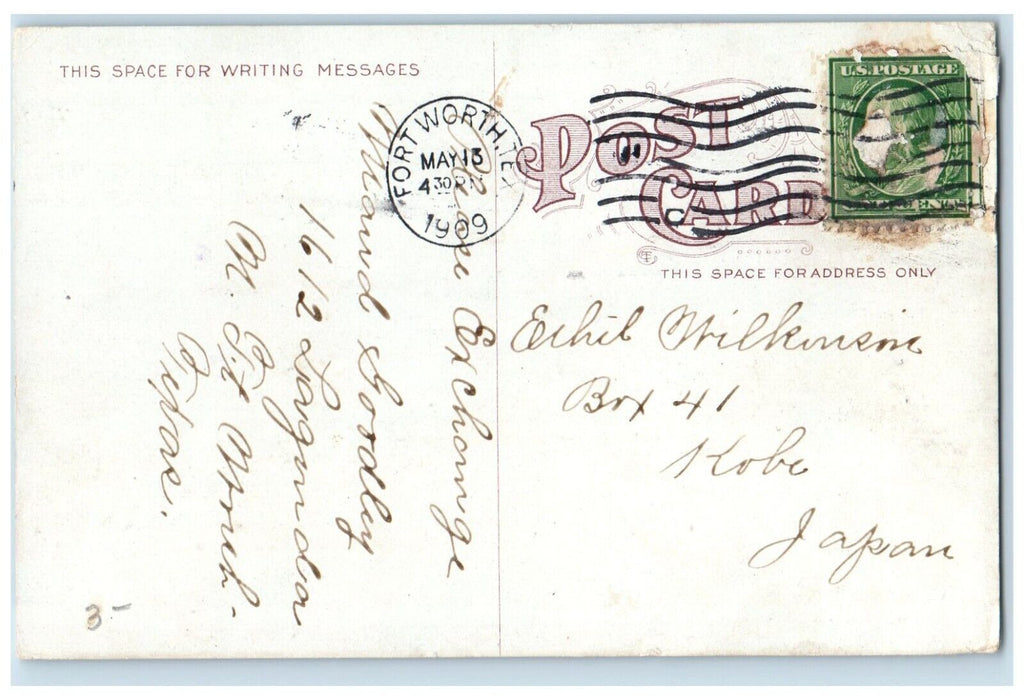 THIS SPACE FOR WRITING MESSAGES
Please Exchange
Miand Goodley
1612 Lagunda
N. Ft Worth.
Texas.
3-
FORT WORTH, TEX
MAY 13
430 PM
1909
POST CARD
U.S. POSTAGE
THIS SPACE FOR ADDRESS ONLY
Ethil Wilkinson
Box 41
Kobe
Japan